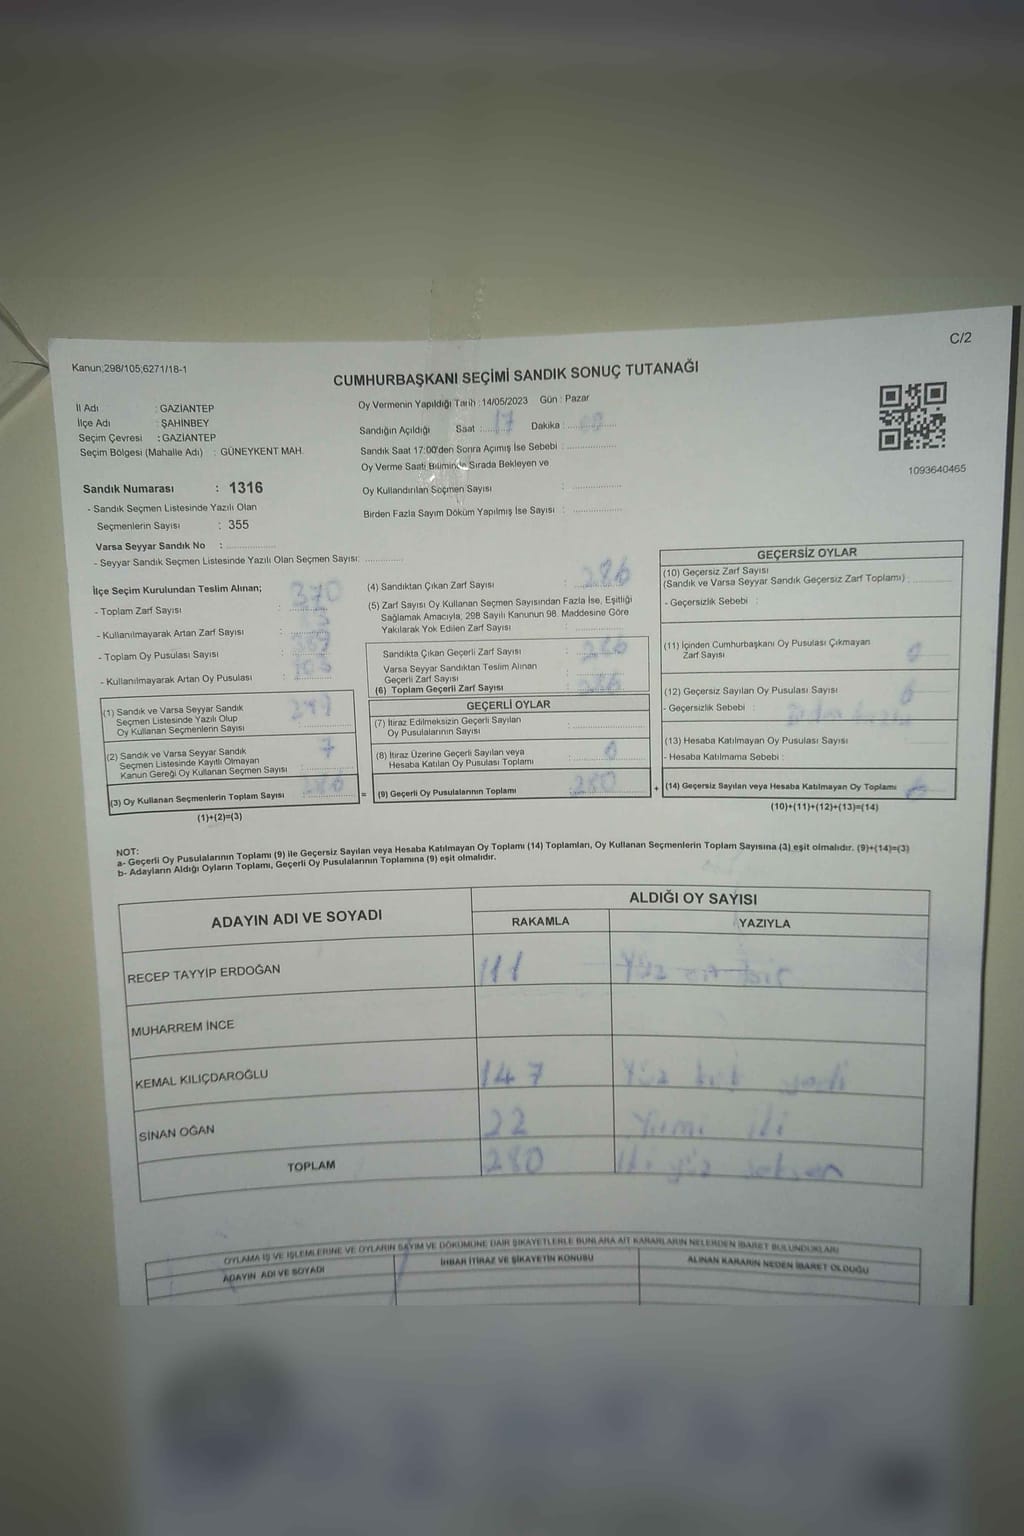 C/2
Kanun;298/105;6271/18-1
CUMHURBAŞKANI SEÇİMİ SANDIK SONUÇ TUTANAĞI
İl Adı : GAZİANTEP
İlçe Adı : ŞAHİNBEY
Seçim Çevresi : GAZİANTEP
Seçim Bölgesi (Mahalle Adı) : GÜNEYKENT MAH.
Sandık Numarası : 1316
- Sandık Seçmen Listesinde Yazılı Olan
Seçmenlerin Sayısı : 355
Varsa Seyyar Sandık No :
- Seyyar Sandık Seçmen Listesinde Yazılı Olan Seçmen Sayısı:
Oy Vermenin Yapıldığı Tarih : 14/05/2023 Gün : Pazar
Sandığın Açıldığı Saat : 17 Dakika :
Sandık Saat 17:00'den Sonra Açımış İse Sebebi :
Oy Verme Saati Bitiminde Sırada Bekleyen ve
Oy Kullandırılan Seçmen Sayısı :
Birden Fazla Sayım Döküm Yapılmış İse Sayısı :
1093640465
İlçe Seçim Kurulundan Teslim Alınan;
- Toplam Zarf Sayısı : 370
- Kullanılmayarak Artan Zarf Sayısı :
- Toplam Oy Pusulası Sayısı :
- Kullanılmayarak Artan Oy Pusulası :
(1) Sandık ve Varsa Seyyar Sandık
Seçmen Listesinde Yazılı Olup
Oy Kullanan Seçmenlerin Sayısı :
(2) Sandık ve Varsa Seyyar Sandık
Seçmen Listesinde Kayıtlı Olmayan
Kanun Gereği Oy Kullanan Seçmen Sayısı : 7
(3) Oy Kullanan Seçmenlerin Toplam Sayısı :
(1)+(2)=(3)
(4) Sandıktan Çıkan Zarf Sayısı : 286
(5) Zarf Sayısı Oy Kullanan Seçmen Sayısından Fazla İse, Eşitliği
Sağlamak Amacıyla, 298 Sayılı Kanunun 98. Maddesine Göre
Yakılarak Yok Edilen Zarf Sayısı :
Sandıkta Çıkan Geçerli Zarf Sayısı : 286
Varsa Seyyar Sandıktan Teslim Alınan
Geçerli Zarf Sayısı :
(6) Toplam Geçerli Zarf Sayısı : 286
GEÇERLİ OYLAR
(7) İtiraz Edilmeksizin Geçerli Sayılan
Oy Pusulalarının Sayısı :
(8) İtiraz Üzerine Geçerli Sayılan veya
Hesaba Katılan Oy Pusulası Toplamı : 0
= (9) Geçerli Oy Pusulalarının Toplamı : 280 +
GEÇERSİZ OYLAR
(10) Geçersiz Zarf Sayısı
(Sandık ve Varsa Seyyar Sandık Geçersiz Zarf Toplamı) :
- Geçersizlik Sebebi :
(11) İçinden Cumhurbaşkanı Oy Pusulası Çıkmayan
Zarf Sayısı : 0
(12) Geçersiz Sayılan Oy Pusulası Sayısı : 6
- Geçersizlik Sebebi :
(13) Hesaba Katılmayan Oy Pusulası Sayısı :
- Hesaba Katılmama Sebebi :
(14) Geçersiz Sayılan veya Hesaba Katılmayan Oy Toplamı : 6
(10)+(11)+(12)+(13)=(14)
NOT:
a- Geçerli Oy Pusulalarının Toplamı (9) ile Geçersiz Sayılan veya Hesaba Katılmayan Oy Toplamı (14) Toplamları, Oy Kullanan Seçmenlerin Toplam Sayısına (3) eşit olmalıdır. (9)+(14)=(3)
b- Adayların Aldığı Oyların Toplamı, Geçerli Oy Pusulalarının Toplamına (9) eşit olmalıdır.
ADAYIN ADI VE SOYADI
ALDIĞI OY SAYISI
RAKAMLA YAZIYLA
RECEP TAYYİP ERDOĞAN 111 Yüz on bir
MUHARREM İNCE
KEMAL KILIÇDAROĞLU 147 Yüz kırk yedi
SİNAN OĞAN 22 Yirmi iki
TOPLAM 280 İki yüz seksen
OYLAMA İŞ VE İŞLEMLERİNE VE OYLARIN SAYIM VE DÖKÜMÜNE DAİR ŞİKAYETLERLE BUNLARA AİT KARARLARIN NELERDEN İBARET BULUNDUKLARI
ADAYIN ADI VE SOYADI İHBAR İTİRAZ VE ŞİKAYETİN KONUSU ALINAN KARARIN NEDEN İBARET OLDUĞU